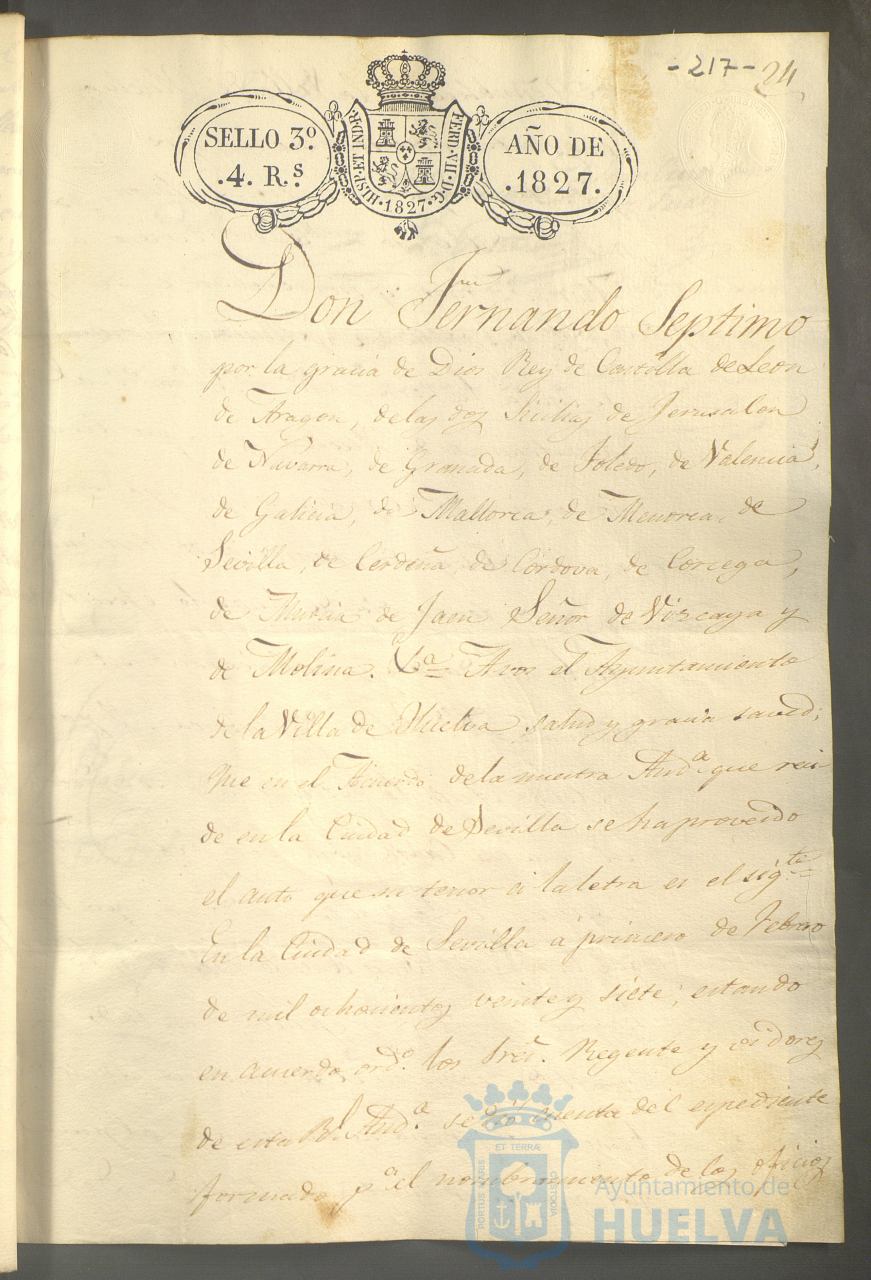 - 217 - 24
SELLO 3º
.4. R.s
HISP.ET IND.R. 1827. FERD.VII.D.G.
AÑO DE
.1827.
Don Fernando Septimo
por la gracia de Dios Rey de Castilla de Leon
de Aragon, de las dos Sicilias de Jerusalen
de Navarra, de Granada, de Toledo, de Valencia,
de Galicia, de Mallorca, de Menorca, de
Sevilla, de Cerdeña, de Córdova, de Corcega,
de Murcia de Jaen Señor de Vizcaya y
de Molina. &a A vos el Ayuntamiento
de la Villa de Huelva salud y gracia saved;
Que en el Acuerdo de la nuestra Auda que reci
de en la Ciudad de Sevilla se ha proveido
el auto que su tenor á la letra es el sigte
En la Ciudad de Sevilla á primero de Febrero
de mil ochocientos veinte y siete; estando
en acuerdo ordo. los Sres. Regente y oidores
de esta Rl Auda. se dió cuenta del expediente
formado pa el nombramiento de los oficios
PORTUS MARIS ET TERRÆ CUSTODIA
Ayuntamiento de
HUELVA